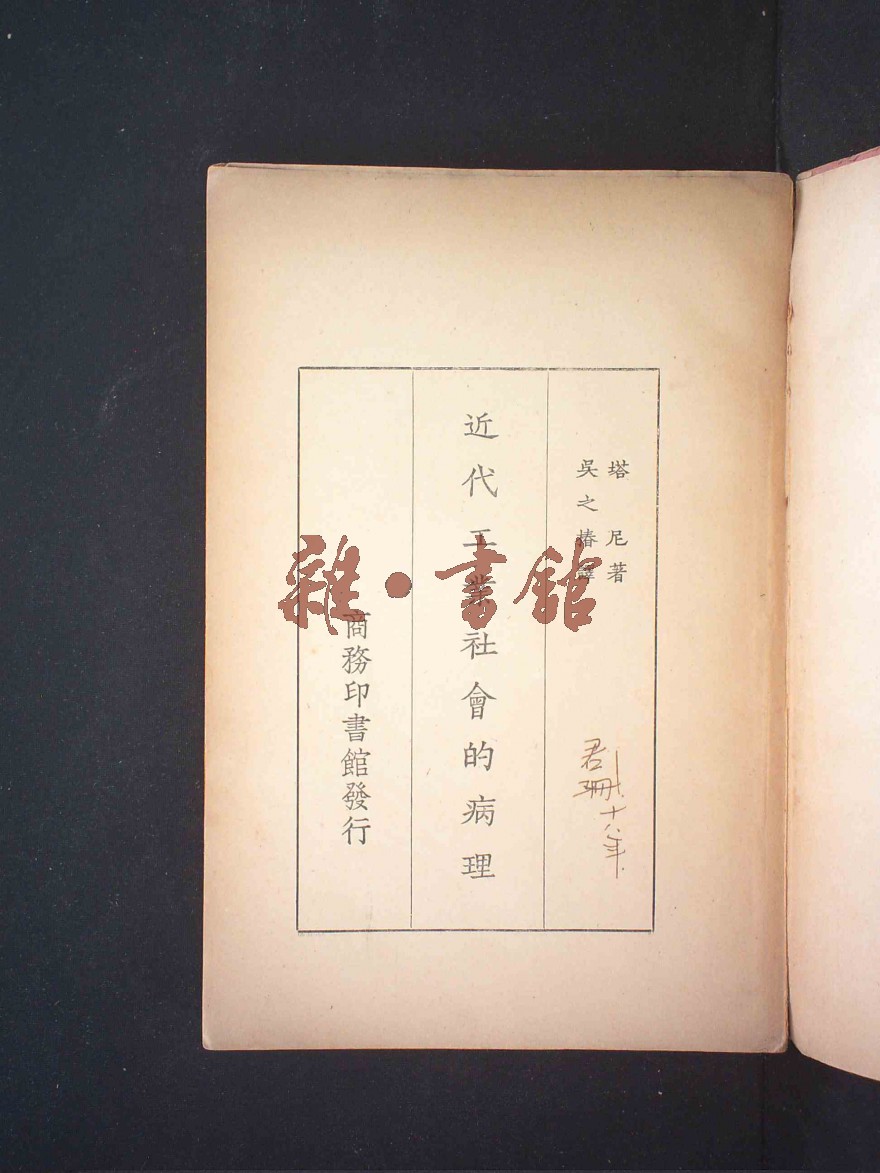 塔尼著
吳之椿譯
君珊十八年
近代工業社會的病理
商務印書館發行
雜·書館